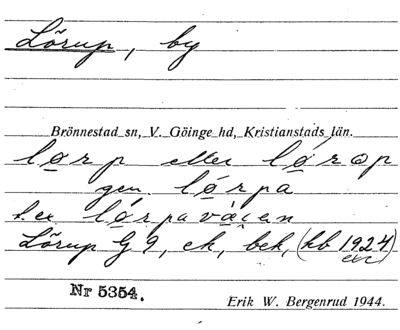 Lörup, by
Brönnestad sn, V. Göinge hd, Kristianstads län.
lørp eller lørop
gen. lørpa
t.ex. lørpavàien
Lörup G 9, ek, bek, (kb 1924
Nr 5354.
Erik W. Bergenrud 1944.